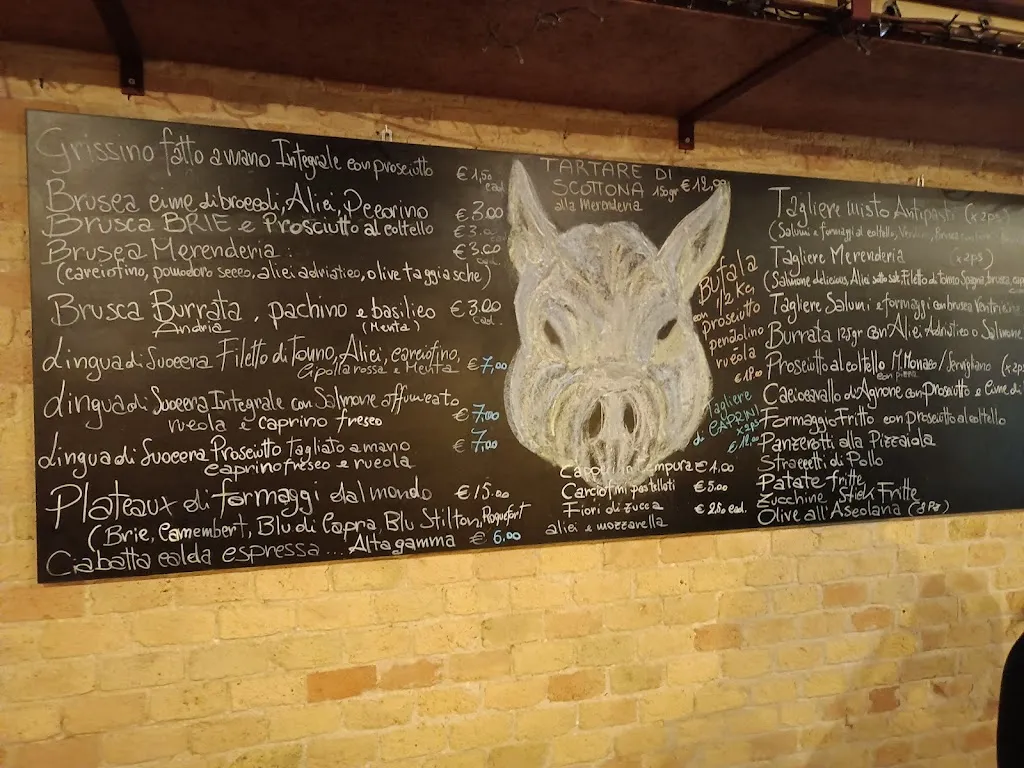 Grissino fatto a mano Integrale con prosciutto € 1,50 cad.
Brusca cime di broccoli, Alici, Pecorino € 3.00
Brusca BRIE e Prosciutto al coltello € 3.00
Brusca Merenderia : € 3.00 cad.
(carciofino, pomodoro secco, alici adriatico, olive taggiasche)
Brusca Burrata, pachino e basilico € 3.00 cad.
Andria (Menta)
Lingua di Suocera Filetto di Tonno, Alici, carciofino, € 7,00
Cipolla rossa e Menta
Lingua di Suocera Integrale con Salmone affumicato € 7,00
rucola e caprino fresco
Lingua di Suocera Prosciutto Tagliato a mano € 7,00
caprino fresco e rucola
Plateaux di formaggi dal mondo € 15.00
(Brie, Camembert, Blu di Capra, Blu Stilton, Roquefort
Ciabatta calda espressa ... Alta gamma € 6,00
TARTARE DI
SCOTTONA 150gr € 12,00
alla Merenderia
BUFALA
1/2 Kg
con prosciutto
pendolino
rucola
€ 18.00
Tagliere
di CAPRINI
x2PS
€ 18.00
tempura € 4.00
Carciofini pastellati € 5.00
Fiori di zucca € 2.50 cad.
alici e mozzarella
Tagliere Misto Antipasti (x2ps)
(Salumi e formaggi al coltello,
Tagliere Merenderia (x2ps)
(Salmone delicious, Alici sotto sale, Filetto di tonno Spagna, brusca,
Tagliere Salumi e formaggi con brusca Ventricina
Burrata 125gr con Alici Adriatico o Salmone
Prosciutto al coltello M. Monaco / Servigliano (x2ps
con pizza
Caciocavallo d'Agnone con prosciutto e Cime di
Formaggio Fritto con prosciutto al coltello
Panzerotti alla Pizzaiola
Straccetti di Pollo
Patate fritte
Zucchine Stick Fritte
Olive all'Ascolana (8 Pz)